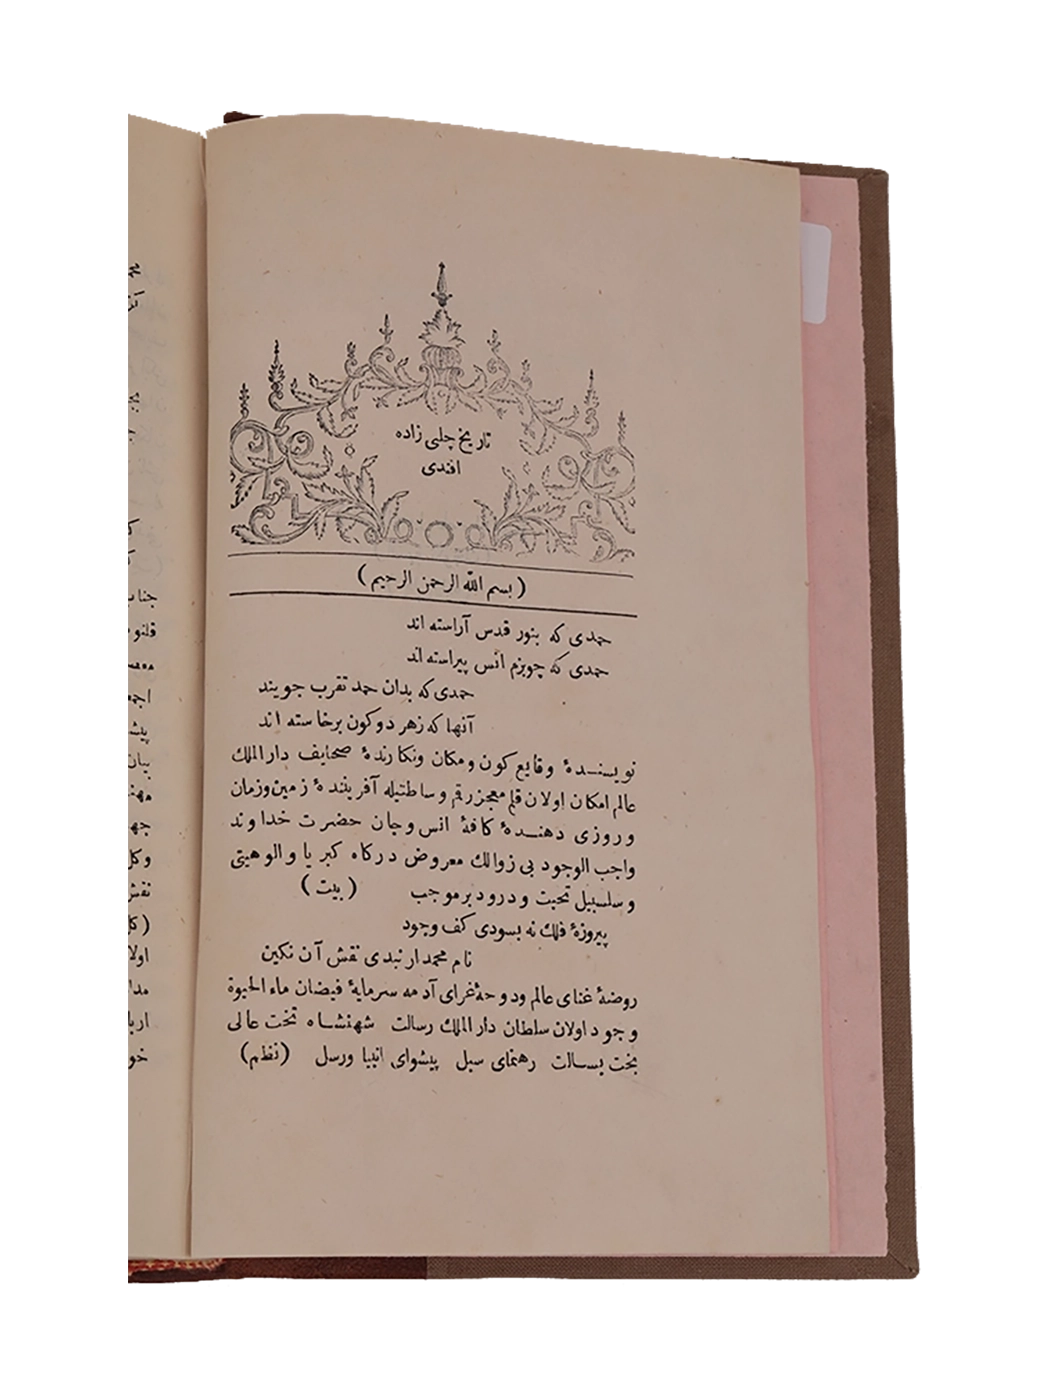 تاريخ چلبى زاده
افندى
(بسم الله الرحمن الرحيم)
حمدى كه بنور قدس آراسته اند
حمدى كه چوبزم انس پيراسته اند
حمدى كه بدان حمد تقرب جويند
آنها كه زهر دو كون برخاسته اند
نويسندهٔ وقايع كون ومكان ونكارندهٔ صحايف دار الملك
عالم امكان اولان قلم معجز رقم وساطتيله آفرينندهٔ زمين وزمان
وروزى دهندهٔ كافهٔ انس وجان حضرت خداوند
واجب الوجود بى زوالك معروض دركاه كبريا والوهيتى
وسلسبيل تحيت ودرود بر موجب (بيت)
پيروزهٔ فلك نه بسودى كف وجود
نام محمد ار نبدى نقش آن نكين
روضهٔ غناى عالم ودوحهٔ غراى آدمه سرمايهٔ فيضان ماء الحيوة
وجود اولان سلطان دار الملك رسالت شهنشاه تخت عالى
بخت بسالت رهنماى سبل پيشواى انبيا ورسل (نظم)
جناب
قلنو
اجمع
پيشـ
بيان
مهنـ
جهـ
وكل
نقش
(كل
اولا
مدا
اربا
خو